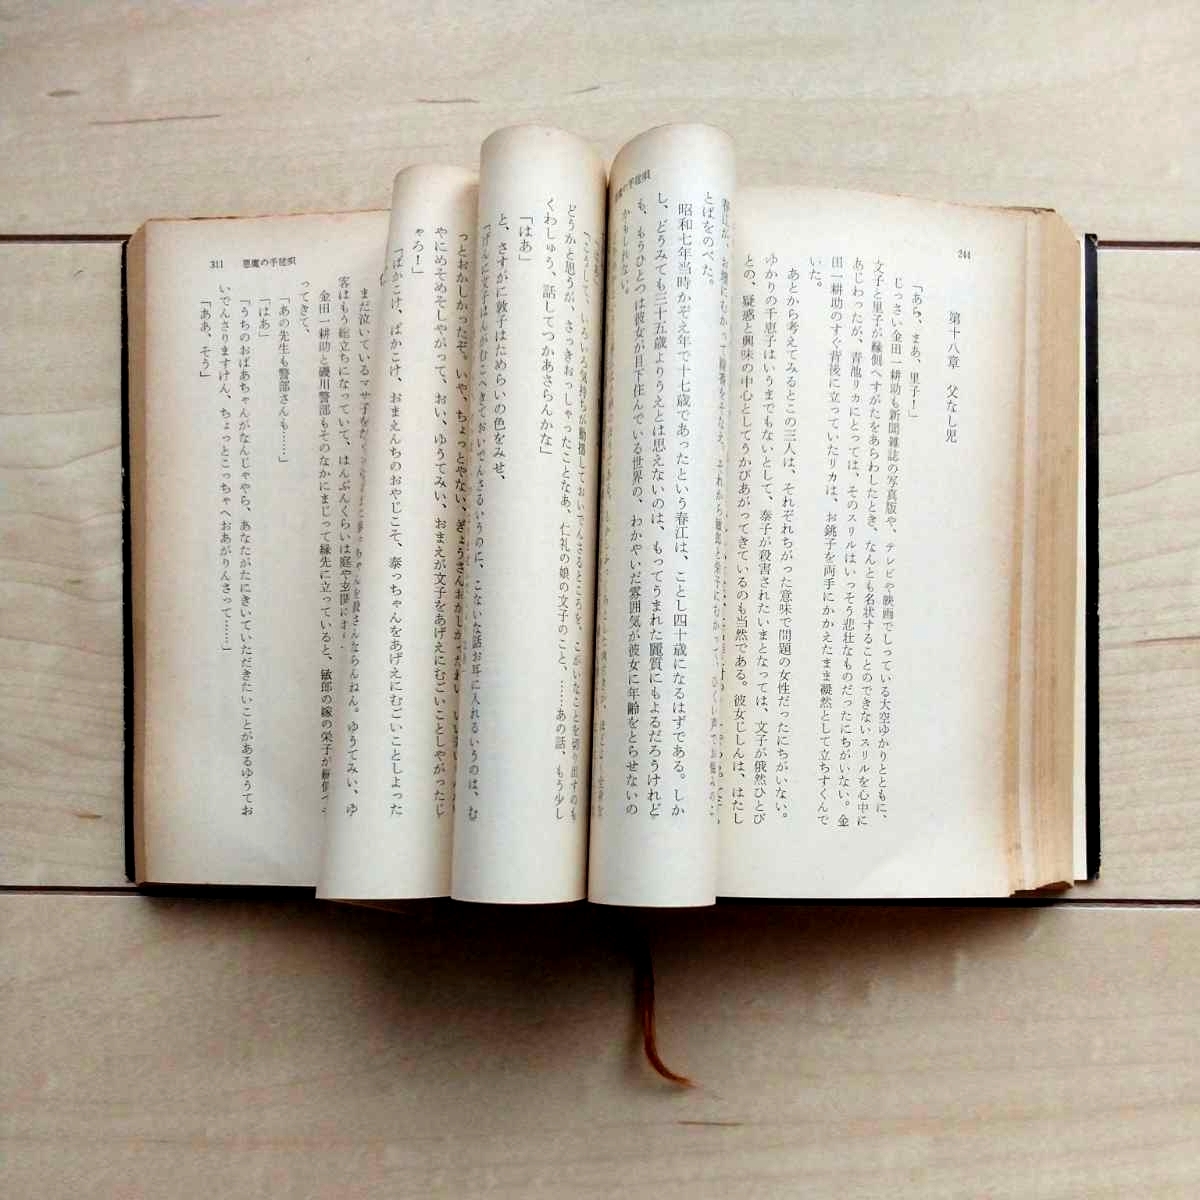 244
第十八章　父なし児
「あら、まあ、里子！」
じっさい金田一耕助も新聞雑誌の写真版や、テレビや映画でしっている大空ゆかりとともに、
文子と里子が縁側へすがたをあらわしたとき、なんとも名状することのできないスリルを心中に
あじわったが、青池リカにとっては、そのスリルはいっそう悲壮なものだったにちがいない。金
田一耕助のすぐ背後に立っていたリカは、お銚子を両手にかかえたまま凝然として立ちすくんで
いた。
あとから考えてみるとこの三人は、それぞれちがった意味で問題の女性だったにちがいない。
ゆかりの千恵子はいうまでもないとして、泰子が殺害されたいまとなっては、文子が俄然ひとび
との、疑惑と興味の中心としてうかびあがってきているのも当然である。彼女じしんは、はたし
悪魔の手毬唄
とばをのべた。
昭和七年当時かぞえ年で十七歳であったという春江は、ことし四十歳になるはずである。しか
し、どうみても三十五歳よりうえとは思えないのは、もってうまれた麗質にもよるだろうけれど
も、もうひとつは彼女が目下住んでいる世界の、わかやいだ雰囲気が彼女に年齢をとらせないの
かもしれない。
「こうして、いろいろ気持ちが動揺しておいでんさるところを、こがいなことを切り出すのも
どうかと思うが、さっきおっしゃったことなあ、仁礼の娘の文子のこと、……あの話、もう少し
くわしゅう、話してつかあさらんかな」
「はあ」
と、さすがに敦子はためらいの色をみせ、
「げんに文子はんがむこへきておいでんさるいうのに、こないな話お耳に入れるいうのは、む
っとおかしかったぞ。いや、ちょっとやない、ぎょうさんおかしかった
やにめそめそしやがって、おい、ゆうてみい、おまえが文子をあげえにむごいことしやがったじ
ゃろ！」
「ばかこけ、ばかこけ、おまえんちのおやじこそ、泰っちゃんをあげえにむごいことしよった
まだ泣いているマサ子を
客はもう総立ちになっていて、はんぶんくらいは庭や玄関に
金田一耕助と磯川警部もそのなかにまじって縁先に立っていると、敏郎の嫁の栄子が
ってきて、
「あの先生も警部さんも……」
「はあ」
「うちのおばあちゃんがなんじゃやら、あなたがたにきいていただきたいことがあるゆうてお
いでんさりますけん、ちょっとこっちゃへおあがりんさって……」
「ああ、そう」
悪魔の手毬唄
311